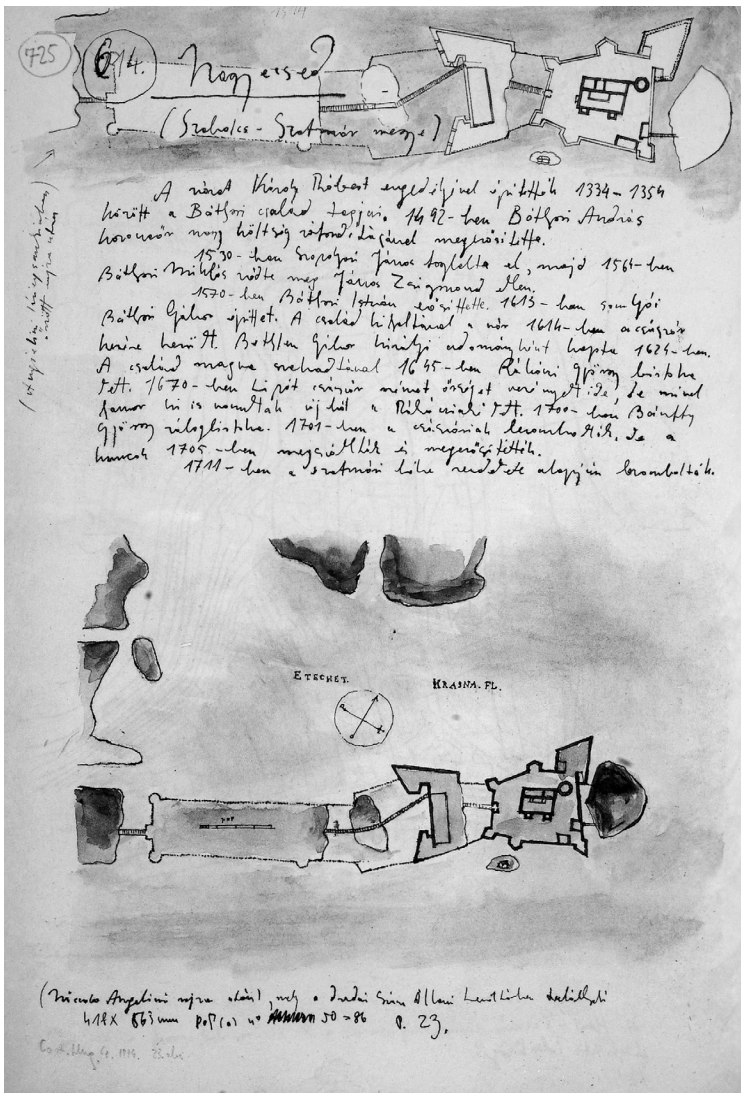 725
614.
Nagyecsed
(Szabolcs-Szatmár megye)
A várat Károly Róbert engedélyével építették 1334-1354
között a Báthori család tagjai. 1492-ben Báthori András
nagy költség ráfordításával megerősítette.
1530-ban Szapolyai János foglalta el, majd 1564-ben
Báthori Miklós védte meg János Zsigmond ellen.
1570-ben Báthori István erősíttette. 1613-ban somlyói
Báthori Gábor építtet. A család kihaltával a vár 1614-ben a császár
kezére került. Bethlen Gábor királyi adományként kapta 1624-ben.
A család magva szakadtával 1645-ben Rákóczi György birtoka
lett. 1670-ben Lipót császár német őrséget vezényelt ide, de mivel
hamar ki is vonultak újból a Rákócziaké lett. 1700-ban Bánffy
György zálogbirtoka. 1701-ben a császáriak lerombolták, de a
kurucok 1705-ben megszállták és megerősítették.
1711-ben a szatmári béke rendelete alapján lerombolták.
ETSCHET.
KRASNA. FL.
(Nicolo Angelini rajza után), mely a drezdai Állami Levéltárban található
418 X 563 mm 50=86 p. 23.